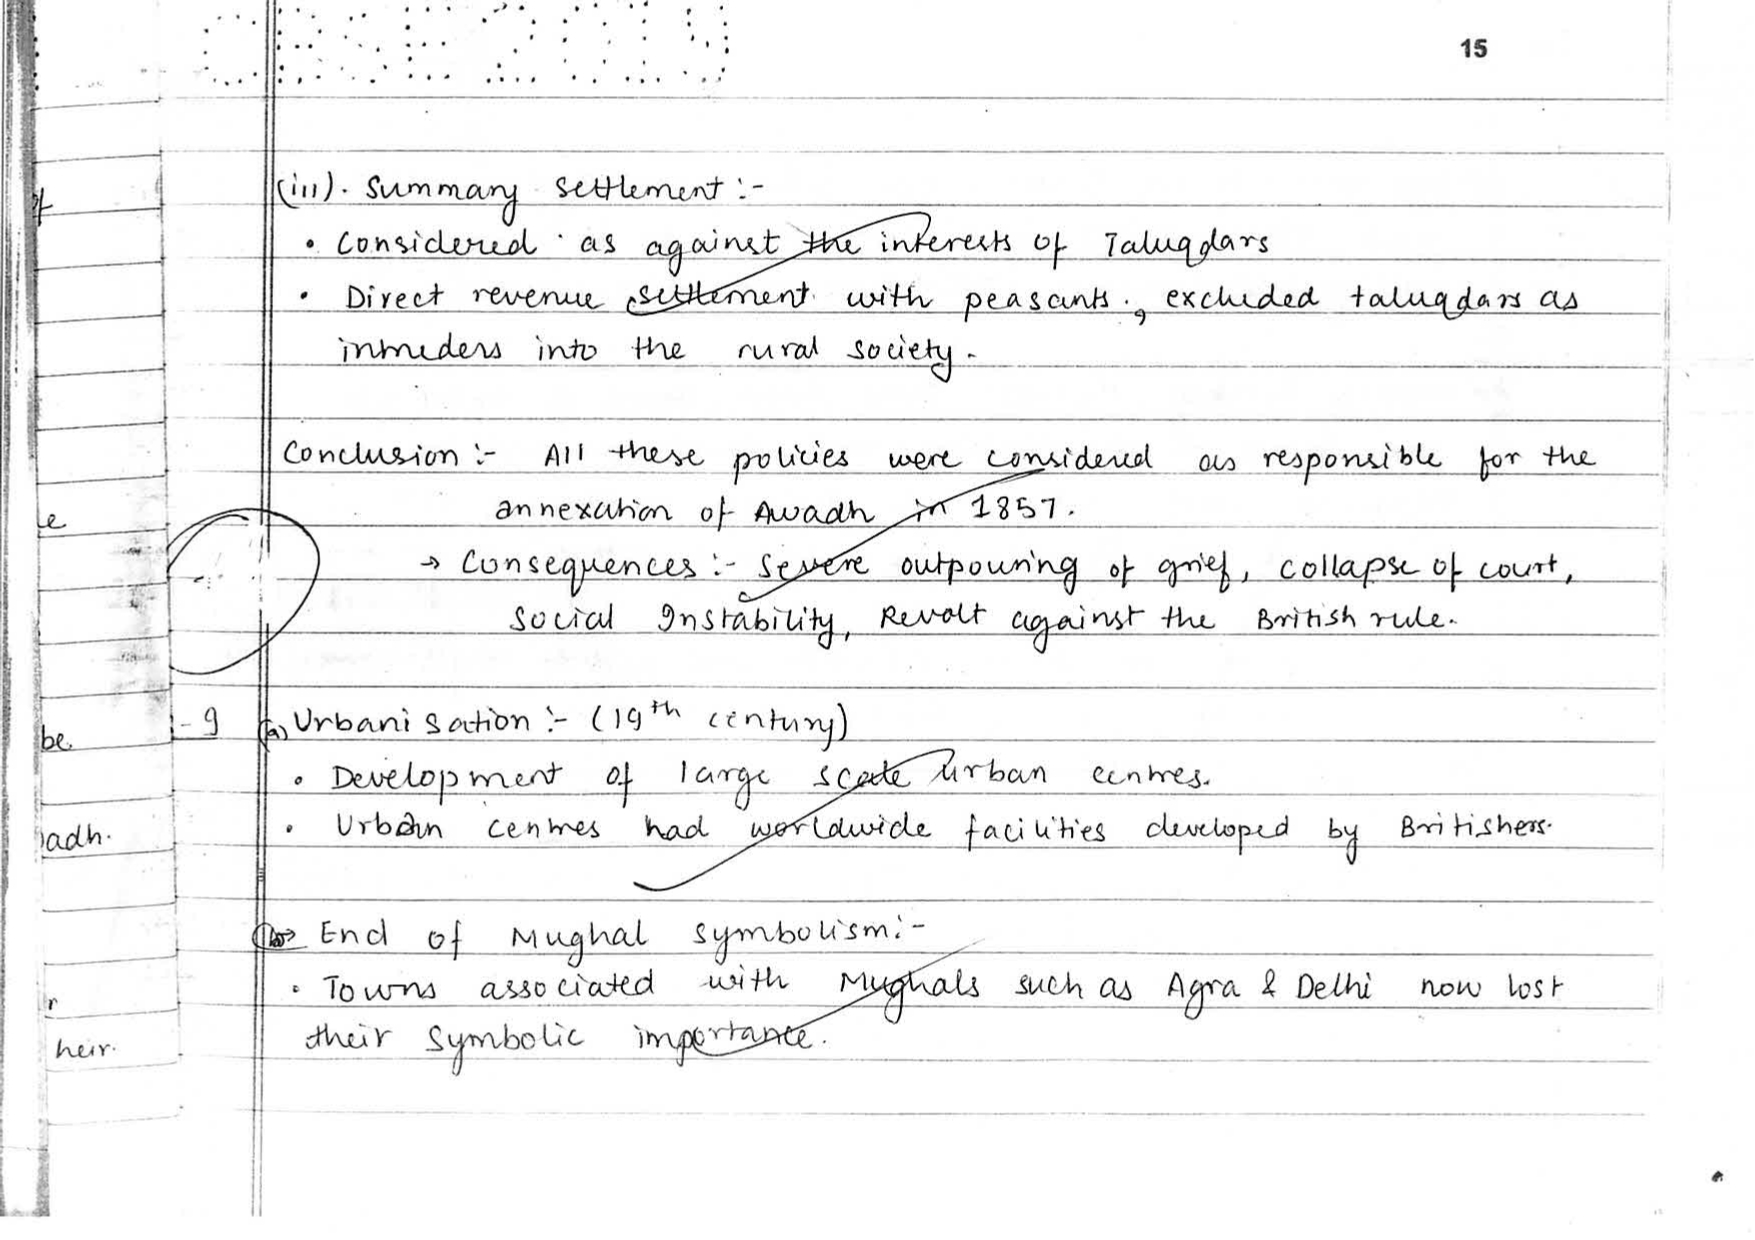 CBSE 2019
15
(iii). Summary settlement :-
• Considered as against the interests of Taluqdars
• Direct revenue settlement with peasants, excluded taluqdars as
intruders into the rural society.
Conclusion :- All these policies were considered as responsible for the
annexation of Awadh in 1857.
→ Consequences :- Severe outpouring of grief, collapse of court,
Social Instability, Revolt against the British rule.
-9 (a) Urbanisation :- (19th century)
• Development of large scale urban centres.
• Urban centres had worldwide facilities developed by Britishers.
→ End of Mughal symbolism :-
• Towns associated with Mughals such as Agra & Delhi now lost
their symbolic importance.
of
e
be
adh.
r
heir.